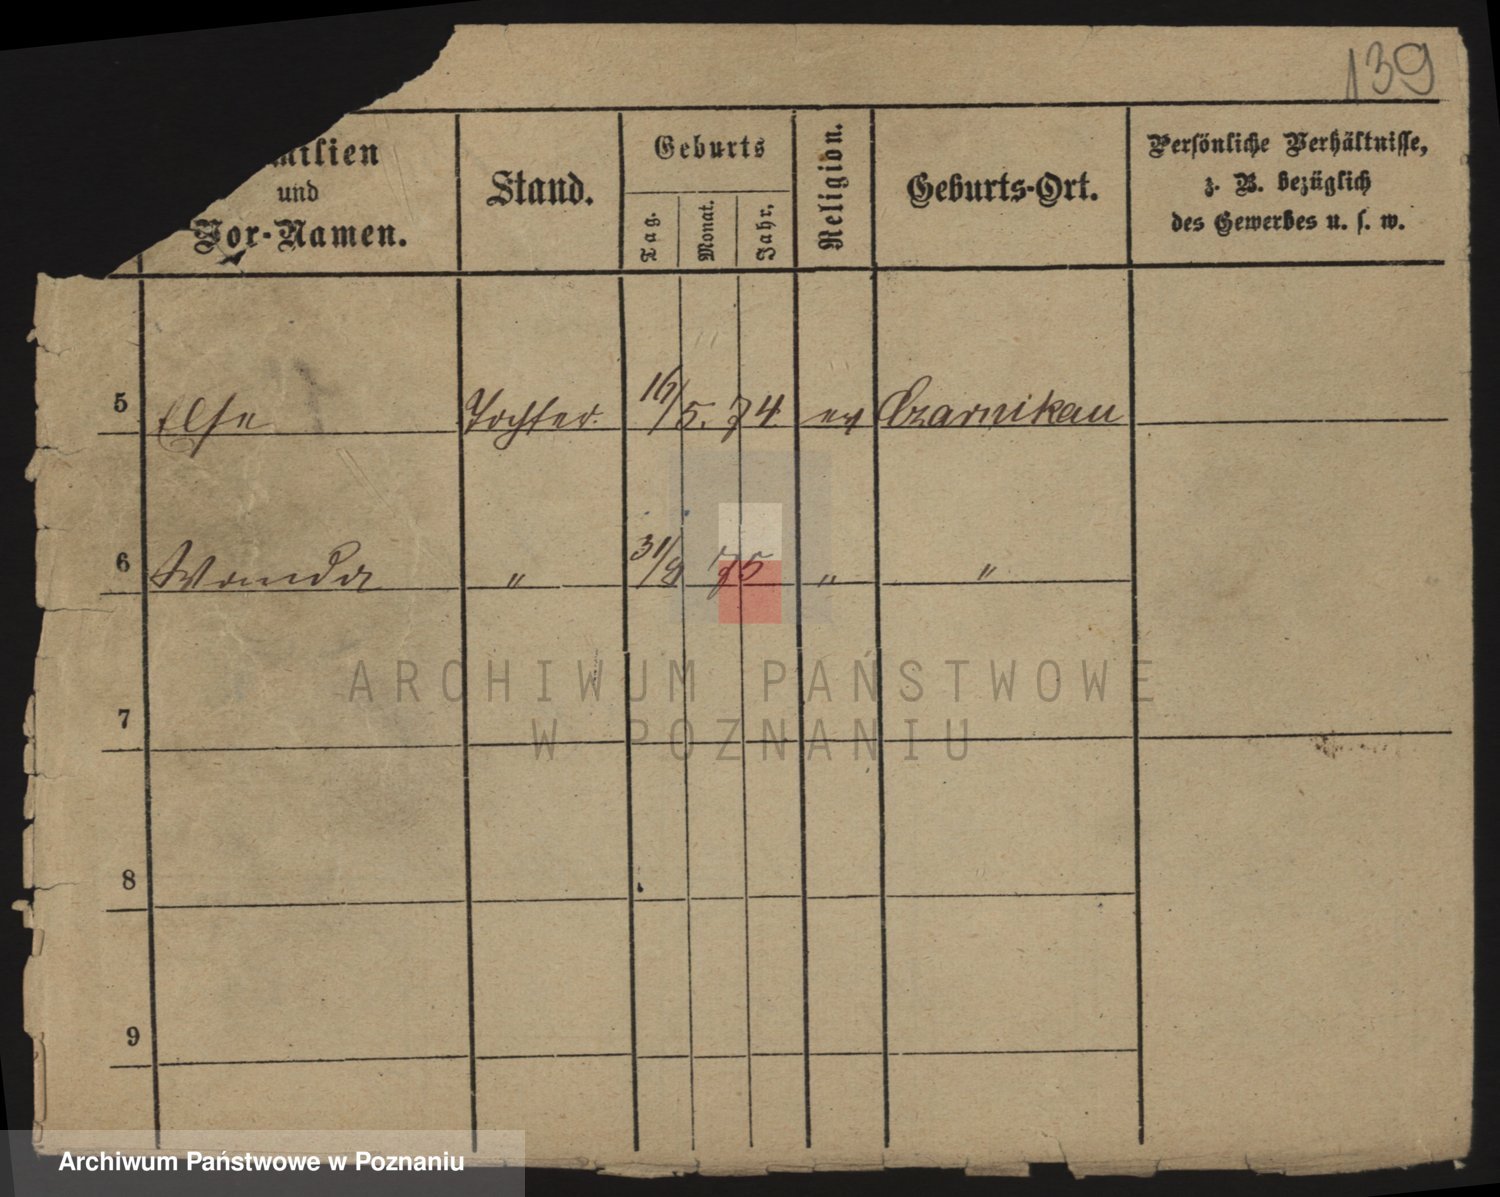 139
milien
und
Vor-Namen.
Stand.
Geburts
Tag.
Monat.
Jahr.
Religion.
Geburts-Ort.
Persönliche Verhältnisse,
z. B. bezüglich
des Gewerbes u. s. w.
5 Else Tochter. 16/5. 74. ev Czarnikau
6 Wanda " 31/8 75 " "
7
8
9
ARCHIWUM PAŃSTWOWE
W POZNANIU
Archiwum Państwowe w Poznaniu